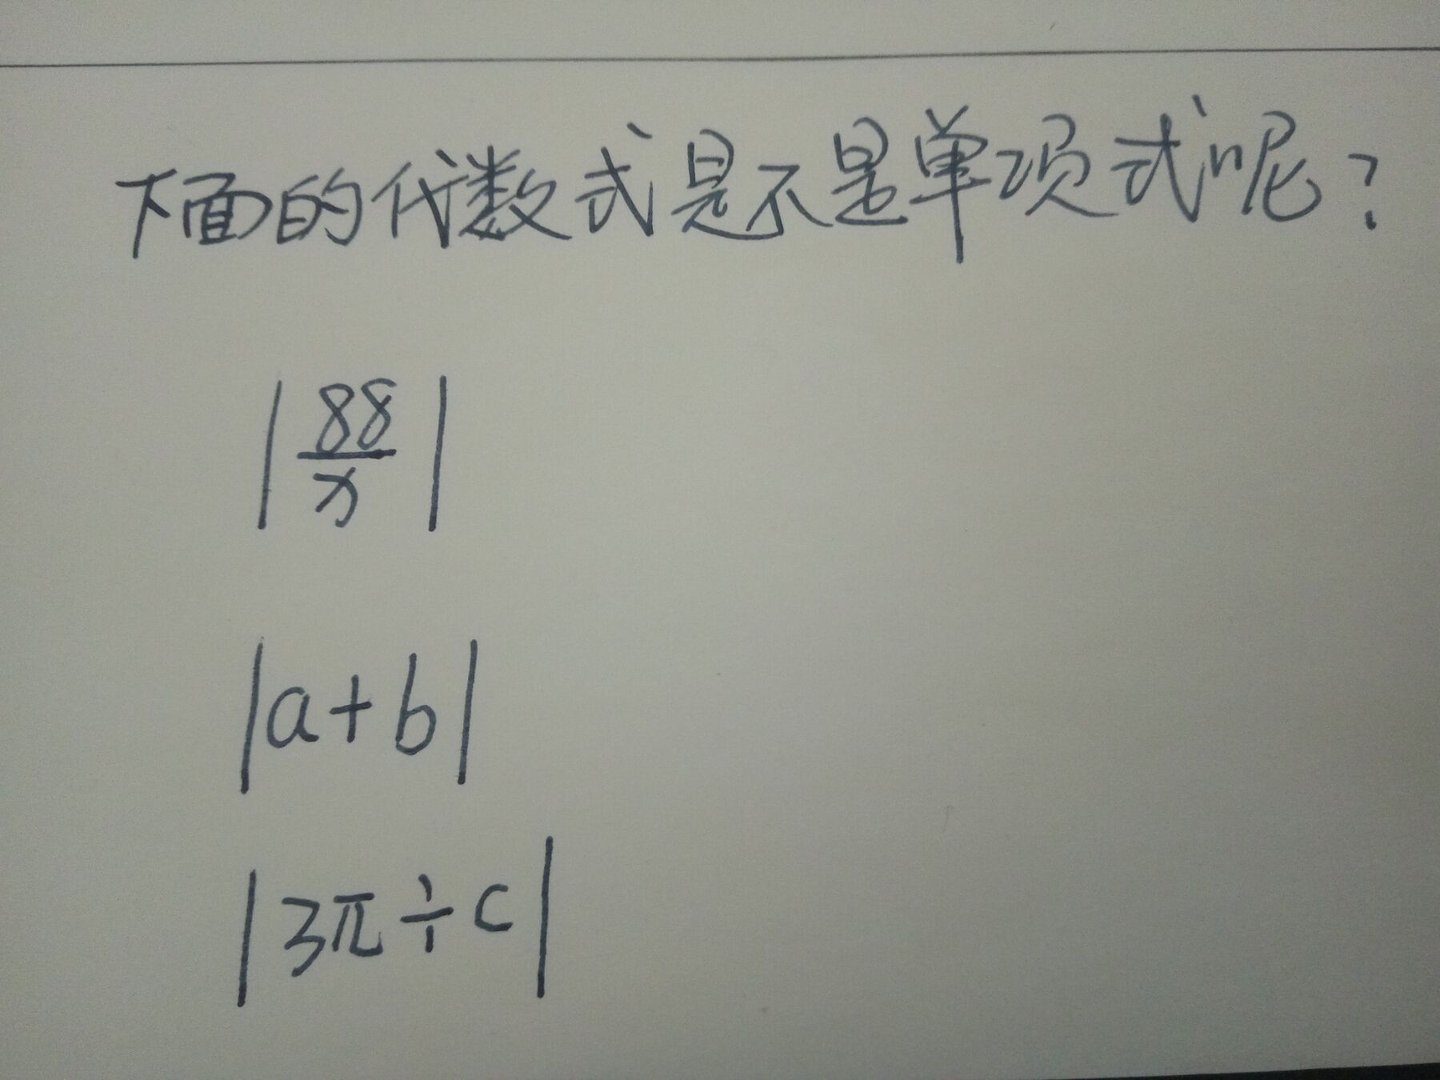 下面的代数式是不是单项式呢?
|88/x|
|a+b|
|3π÷c|